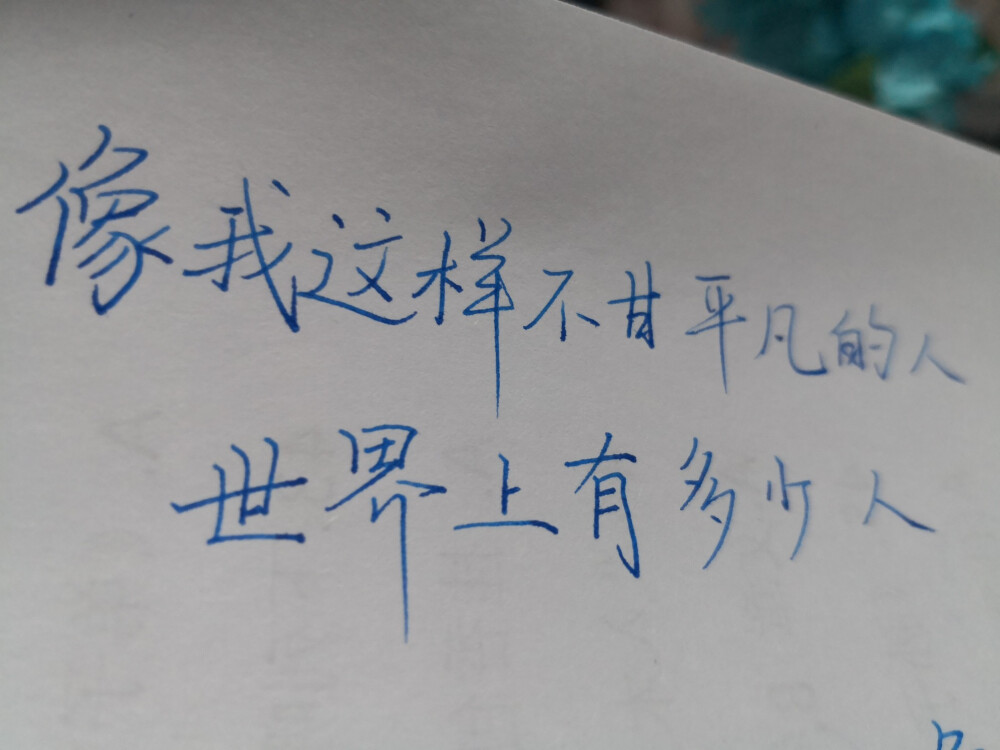 像我这样不甘平凡的人
世界上有多少人